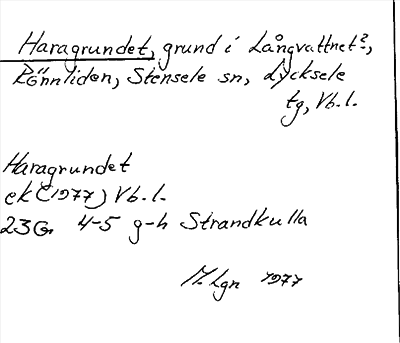 Haragrundet, grund i Långvattnet?,
Rönnliden, Stensele sn, Lycksele
tg, Vb.l.
Haragrundet
ek (1977) Vb.l.
23G 4-5 g-h Strandkulla
M. Lgn 1977